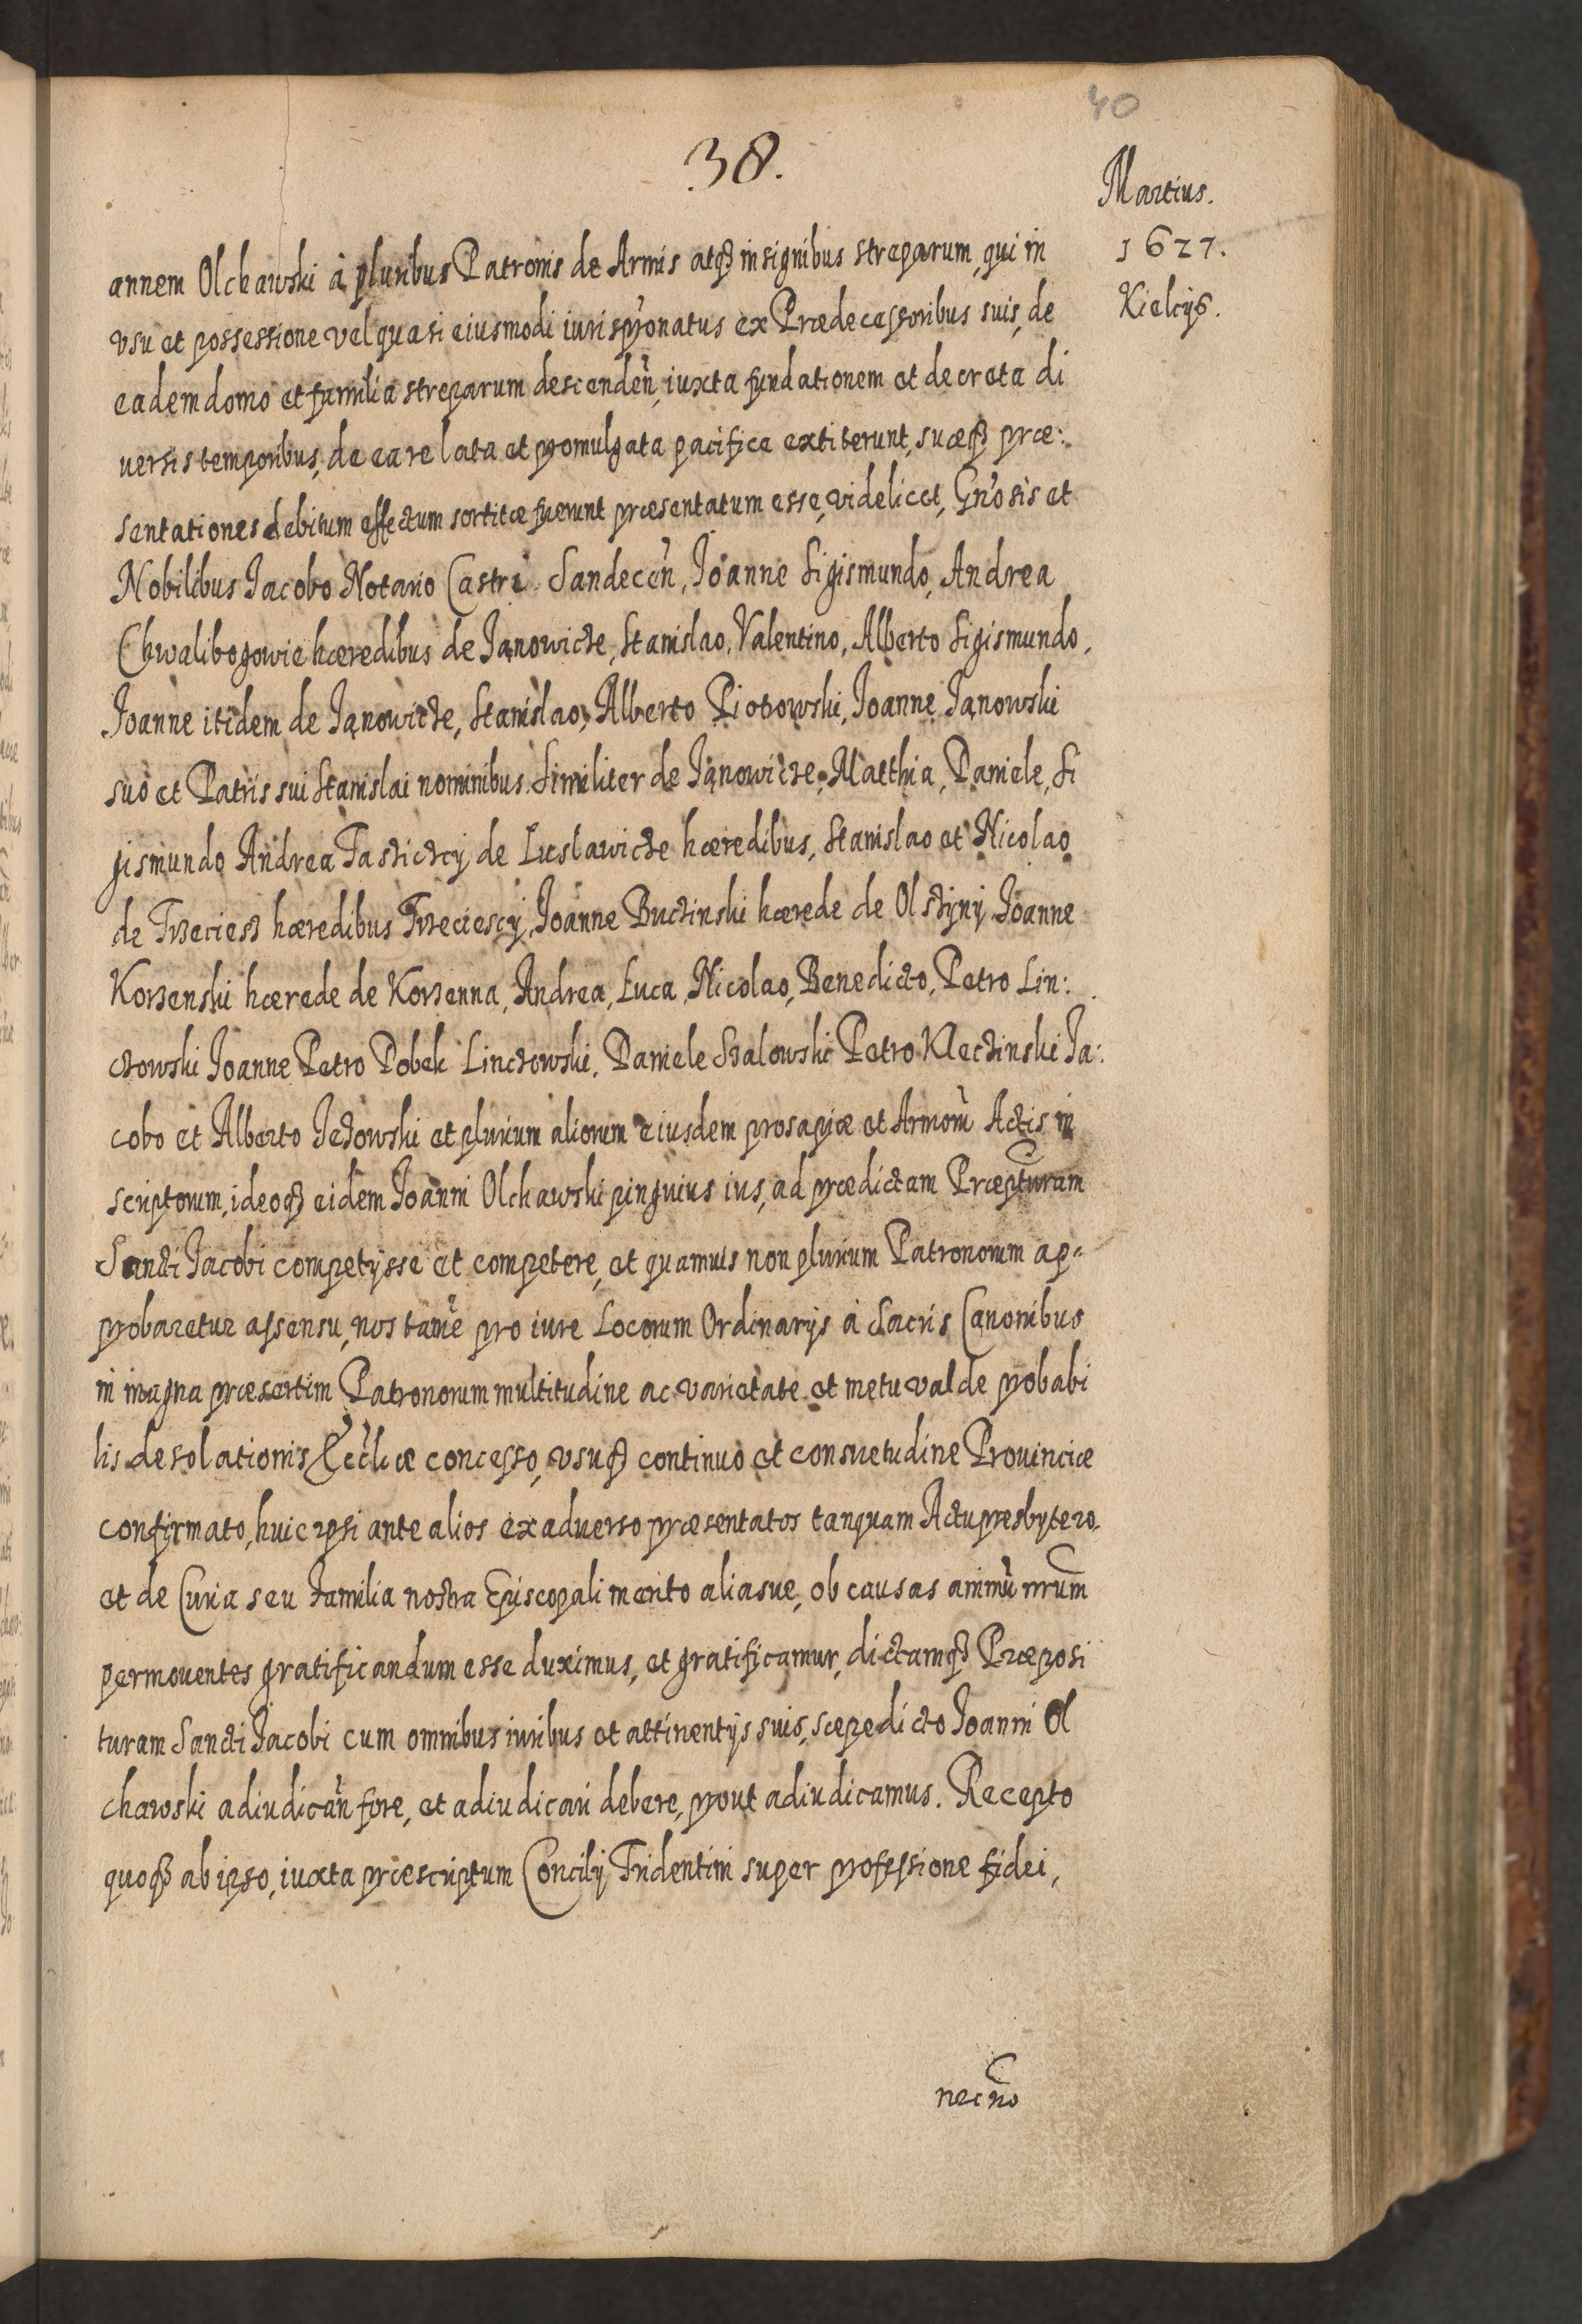 40
38.
Martius.
1627.
Kielcijs.
annem Olchawski à pluribus Patronis de Armis atq3 insignibus streparum, qui in
vsu et possessione vel quasi eiusmodi iurispr̃onatus ex Prædecessoribus suis, de
eadem domo et familia streparum descendeñ, iuxta fundationem et decreta di
uersis temporibus, de ea re lata et promulgata pacifice extiterunt, suæq3 præ:
sentationes debitum effectum sortitæ fuerunt præsentatum esse, videlicet, Gñosis et
Nobilibus Jacobo Notario Castri Sandeceñ, Joanne Sigismundo, Andrea
Chwalibogowie hæredibus de Janowicze, Stanislao, Valentino, Alberto Sigismundo,
Joanne itidem de Janowicze, Stanislao, Alberto Piotrowski, Joanne Janowski
suo et Patris sui Stanislai nominibus. Similiter de Janowicze, Matthia, Daniele, Si
gismundo Andrea Tasziczcÿ de Lucslawicze hæredibus, Stanislao et Nicolao
de Trzeciesz hæredibus Trzeciescÿ, Joanne Buczinski hærede de Olszÿnÿ Joanne
Korzenski hærede de Korzenna, Andrea, Luca, Nicolao, Benedicto, Petro Lin:
czowski Joanne Petro Dobek Linczowski, Daniele Szalowski Petro Kleczinski Ja:
cobo et Alberto Jezowski et plurium aliorum eiusdem prosapiæ et Armorũ Actis in
scriptorum, ideoq3 eidem Joanni Olchawski pinguius ius, ad prædictam Præpturam
Sancti Jacobi competÿsse et competere, et quamuis non plurium Patronorum ap=
probaretur assensu, nos tamẽ pro iure Locorum Ordinarÿs à Sacris Canonibus
in magna præsertim Patronorum multitudine ac varietate et metu valde probabi
lis desolationis Ecc̃liæ concesso, vsuq3 continuo et consuetudine Prouinciæ
confirmato, huic ipsi ante alios ex aduerso præsentatos tanquam Actu presbytero.
et de Curia seu Familia nostra Episcopali merito aliasue, ob causas animũ nrum
permouentes gratificandum esse duximus, et gratificamur, dictamq3 Præposi
turam Sancti Jacobi cum omnibus iuribus et attinentÿs suis, sæpedicto Joanni Ol
chawski adiudicañ fore, et adiudicari debere, prout adiudicamus. Recepto
quoq3 ab ipso, iuxta præscriptum Concilÿ Tridentini super professione fidei,
necño